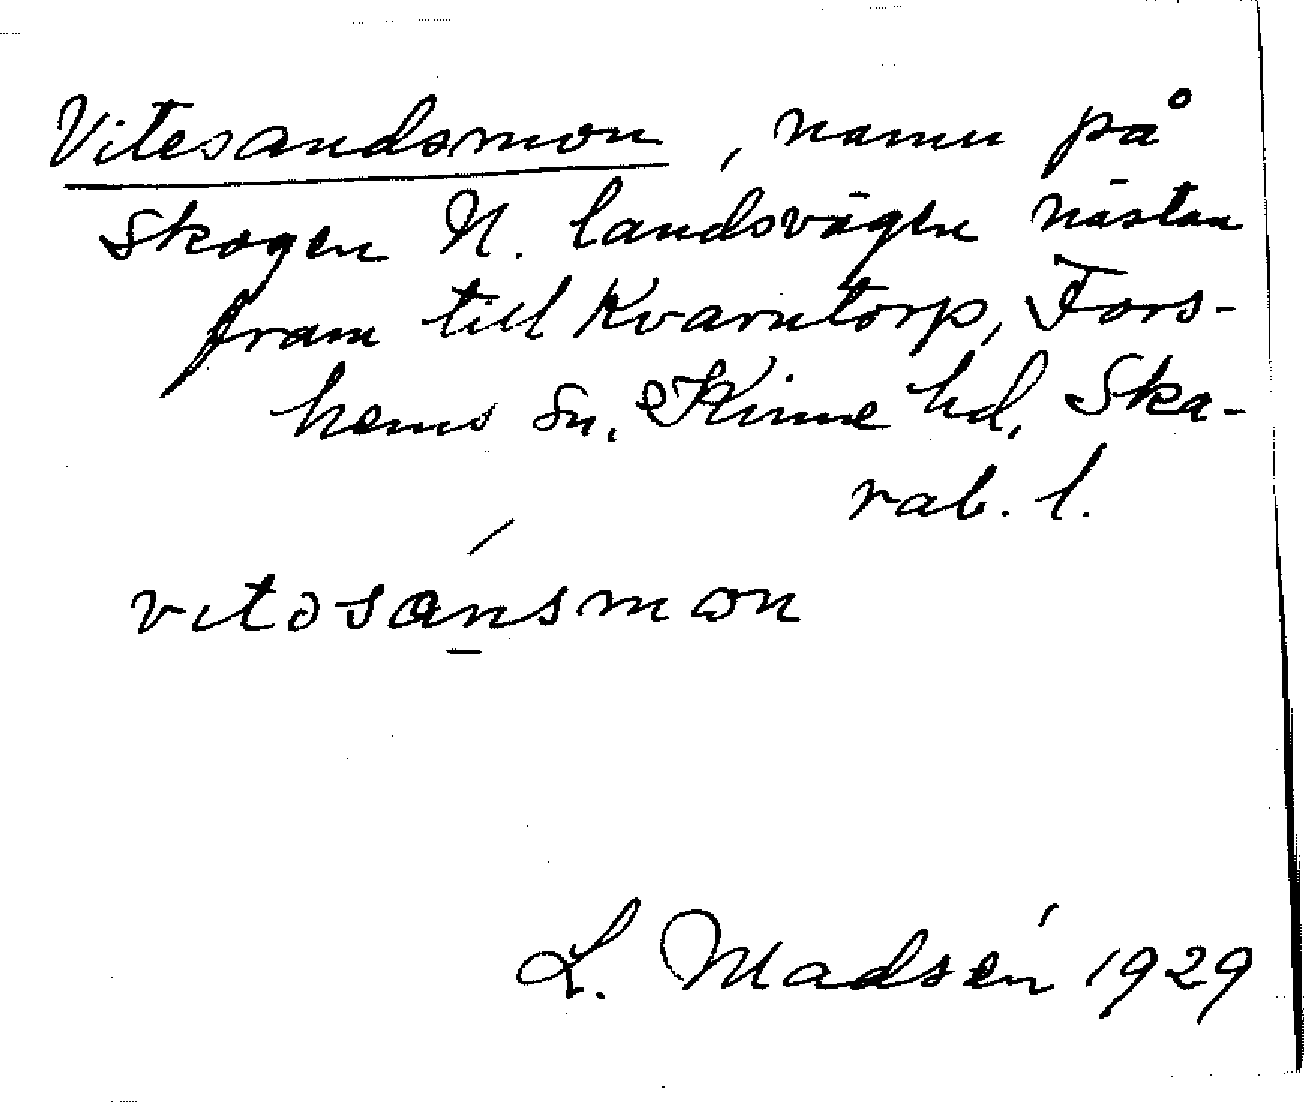 Vitesandsmon, namn på
skogen N. landsvägen nästan
fram till Kvarntorp, Fors-
hems sn, Kinne hd, Ska-
rab. l.
vɩtəsánsmꞷn
L. Madsén 1929